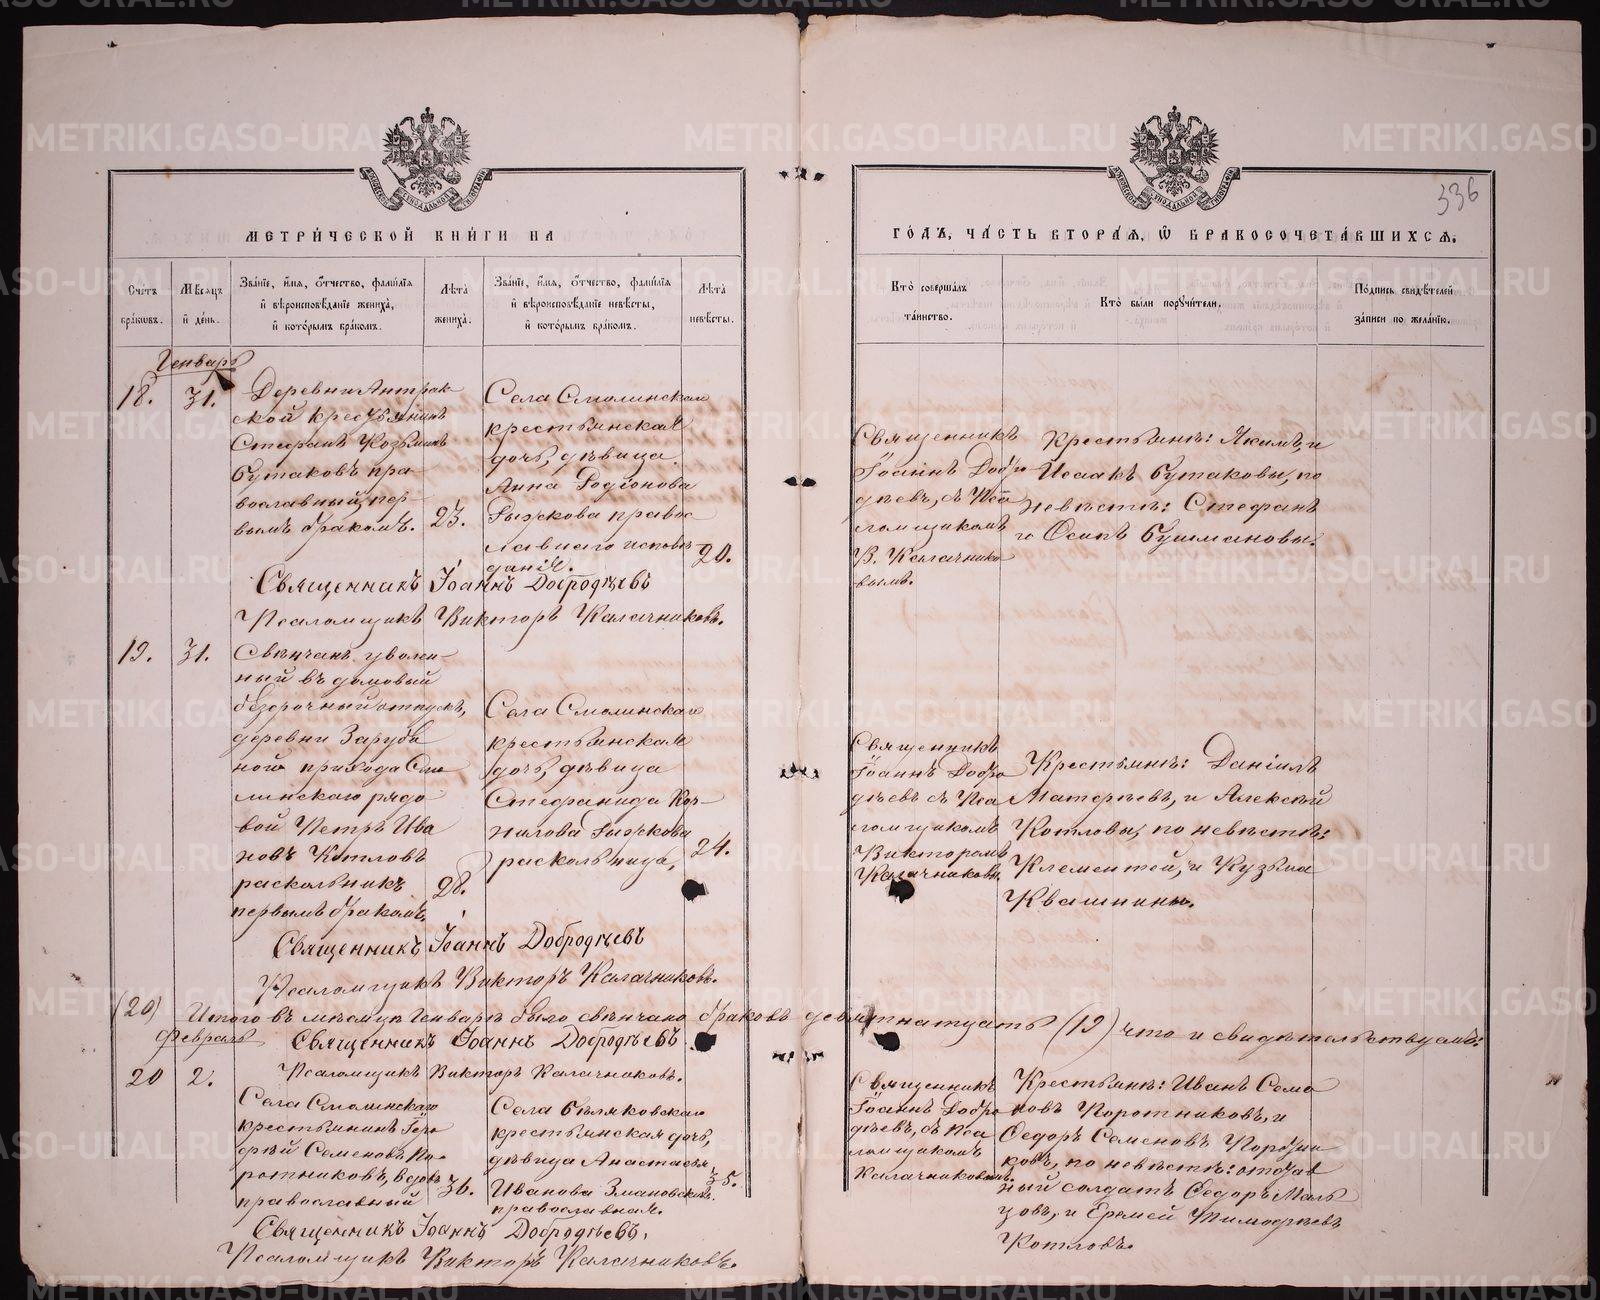 336
МЕТРИ́ЧЕСКОЙ КНИ́ГИ НА
ГО́ДЪ, ЧА́СТЬ ВТОРА́Я, Ѡ҆ БРАКОСОЧЕТА́ВШИХСЯ.
Сче́тъ бра́ковъ.
Мѣ́сяцъ и҆ де́нь.
Зва́нїе, и҆́мя, ѻ҆́тчество, фами́лїя
и҆ вѣроисповѣ́данїе жениха̀,
и҆ кото́рымъ бра́комъ.
Лѣта̀ жениха̀.
Зва́нїе, и҆́мя, ѻ҆́тчество, фами́лїя
и҆ вѣроисповѣ́данїе невѣ́сты,
и҆ кото́рымъ бра́комъ.
Лѣта̀ невѣ́сты.
Кто̀ соверша́лъ та́инство.
Кто̀ бы́ли поручи́тели.
По́дпись свидѣ́телей
за́писи по жела́нїю.
Генварь
18.
31.
Деревни Антрак-
ской крестьянинъ
Стефанъ Козьминъ
Бутаковъ пра-
вославный, пер-
вымъ бракомъ.
23.
Села Смолинскаго
крестьянская
дочь, дѣвица
Анна Родіонова
Рыжкова правос
лавнаго исповѣ
данія.
20.
Священникъ
Іоаннъ Добро
дѣевъ, съ Пса
ломщикомъ
В. Калачнико
вымъ.
Крестьяне: Якимъ, и
Исаакъ Бутаковы, по
невѣстѣ: Стефанъ
и Осипъ Бушмановы.
Священникъ Іоаннъ Добродѣевъ
Псаломщикъ Викторъ Калачниковъ.
19.
31.
Свѣнчанъ уволен-
ный въ домовый
безсрочный отпускъ,
деревни Заруб
ной прихода Смо
линскаго рядо
вой Петръ Ива
новъ Котловъ
раскольникъ
первымъ бракомъ.
28.
Села Смолинскаго
крестьянская
дочь, дѣвица
Стефанида Кор-
нилова Рыжкова
раскольница.
24.
Священникъ
Іоаннъ Добро
дѣевъ съ Пса
ломщикомъ
Викторомъ
Калачниковы
Крестьяне: Даніилъ
Матфеевъ, и Алексѣй
Котловы, по невѣстѣ:
Клементей, и Кузьма
Квашнины.
Священникъ Іоаннъ Добродѣевъ
Псаломщикъ Викторъ Калачниковъ.
(20) Итого въ мѣсяцѣ Генварѣ было свѣнчано браковъ девятнатцать (19) что и свидѣтельствуемъ:
Священникъ Іоаннъ Добродѣевъ
Псаломщикъ Викторъ Калачниковъ.
Февраль
20
2.
Села Смолинскаго
крестьянинъ Геор
фѣй Семеновъ Ко-
ротниковъ, вдовъ
православный
36.
Села Бѣляковскаго
крестьянская дочь,
дѣвица Анастасія
Иванова Змановскихъ.
православная.
35.
Священникъ
Іоаннъ Добро
дѣевъ, съ Пса
ломщикомъ
Калачниковымъ.
Крестьяне: Иванъ Семе
новъ Коротниковъ, и
Ѳедоръ Семеновъ
по невѣстѣ: отстав
ный солдатъ Ѳедоръ Маль
цовъ, и Еремей Тимофеевъ
Котловъ.
Священникъ Іоаннъ Добродѣевъ.
Псаломщикъ Викторъ Калачниковъ.
METRIKI.GASO-URAL.RU